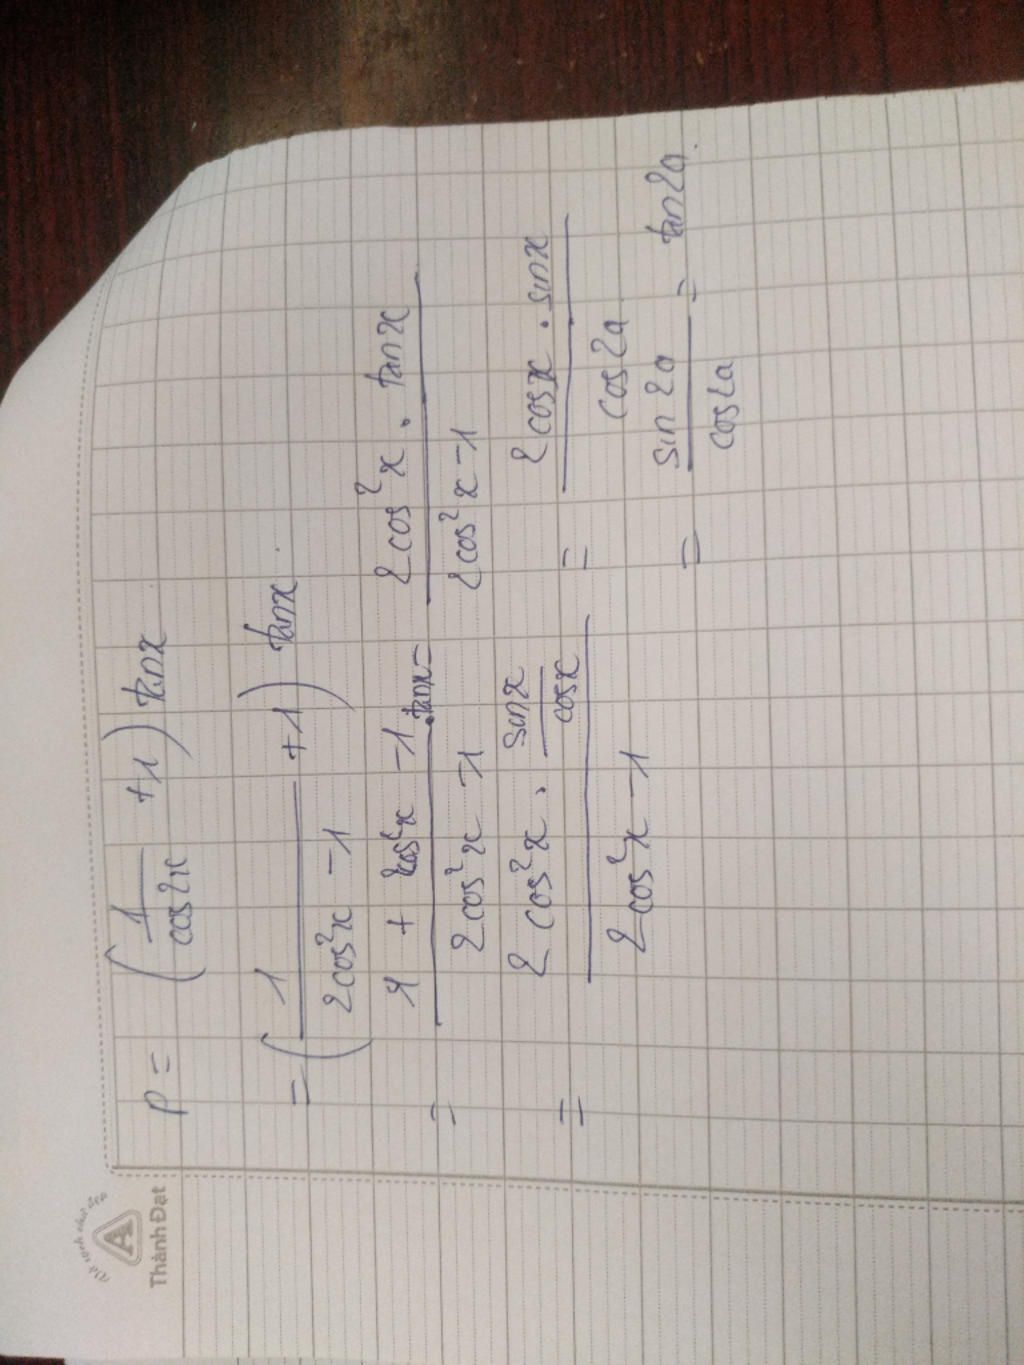 Thành Đạt
P = (1/cos2x + 1) tanx
= (1/(2cos²x - 1) + 1) tanx.
= (1 + 2cos²x - 1)/(2cos²x - 1) . tanx = (2cos²x . tanx)/(2cos²x - 1)
= (2cos²x . sinx/cosx)/(2cos²x - 1) = (2cosx . sinx)/cos2a
= sin2a/cos2a = tan2a.